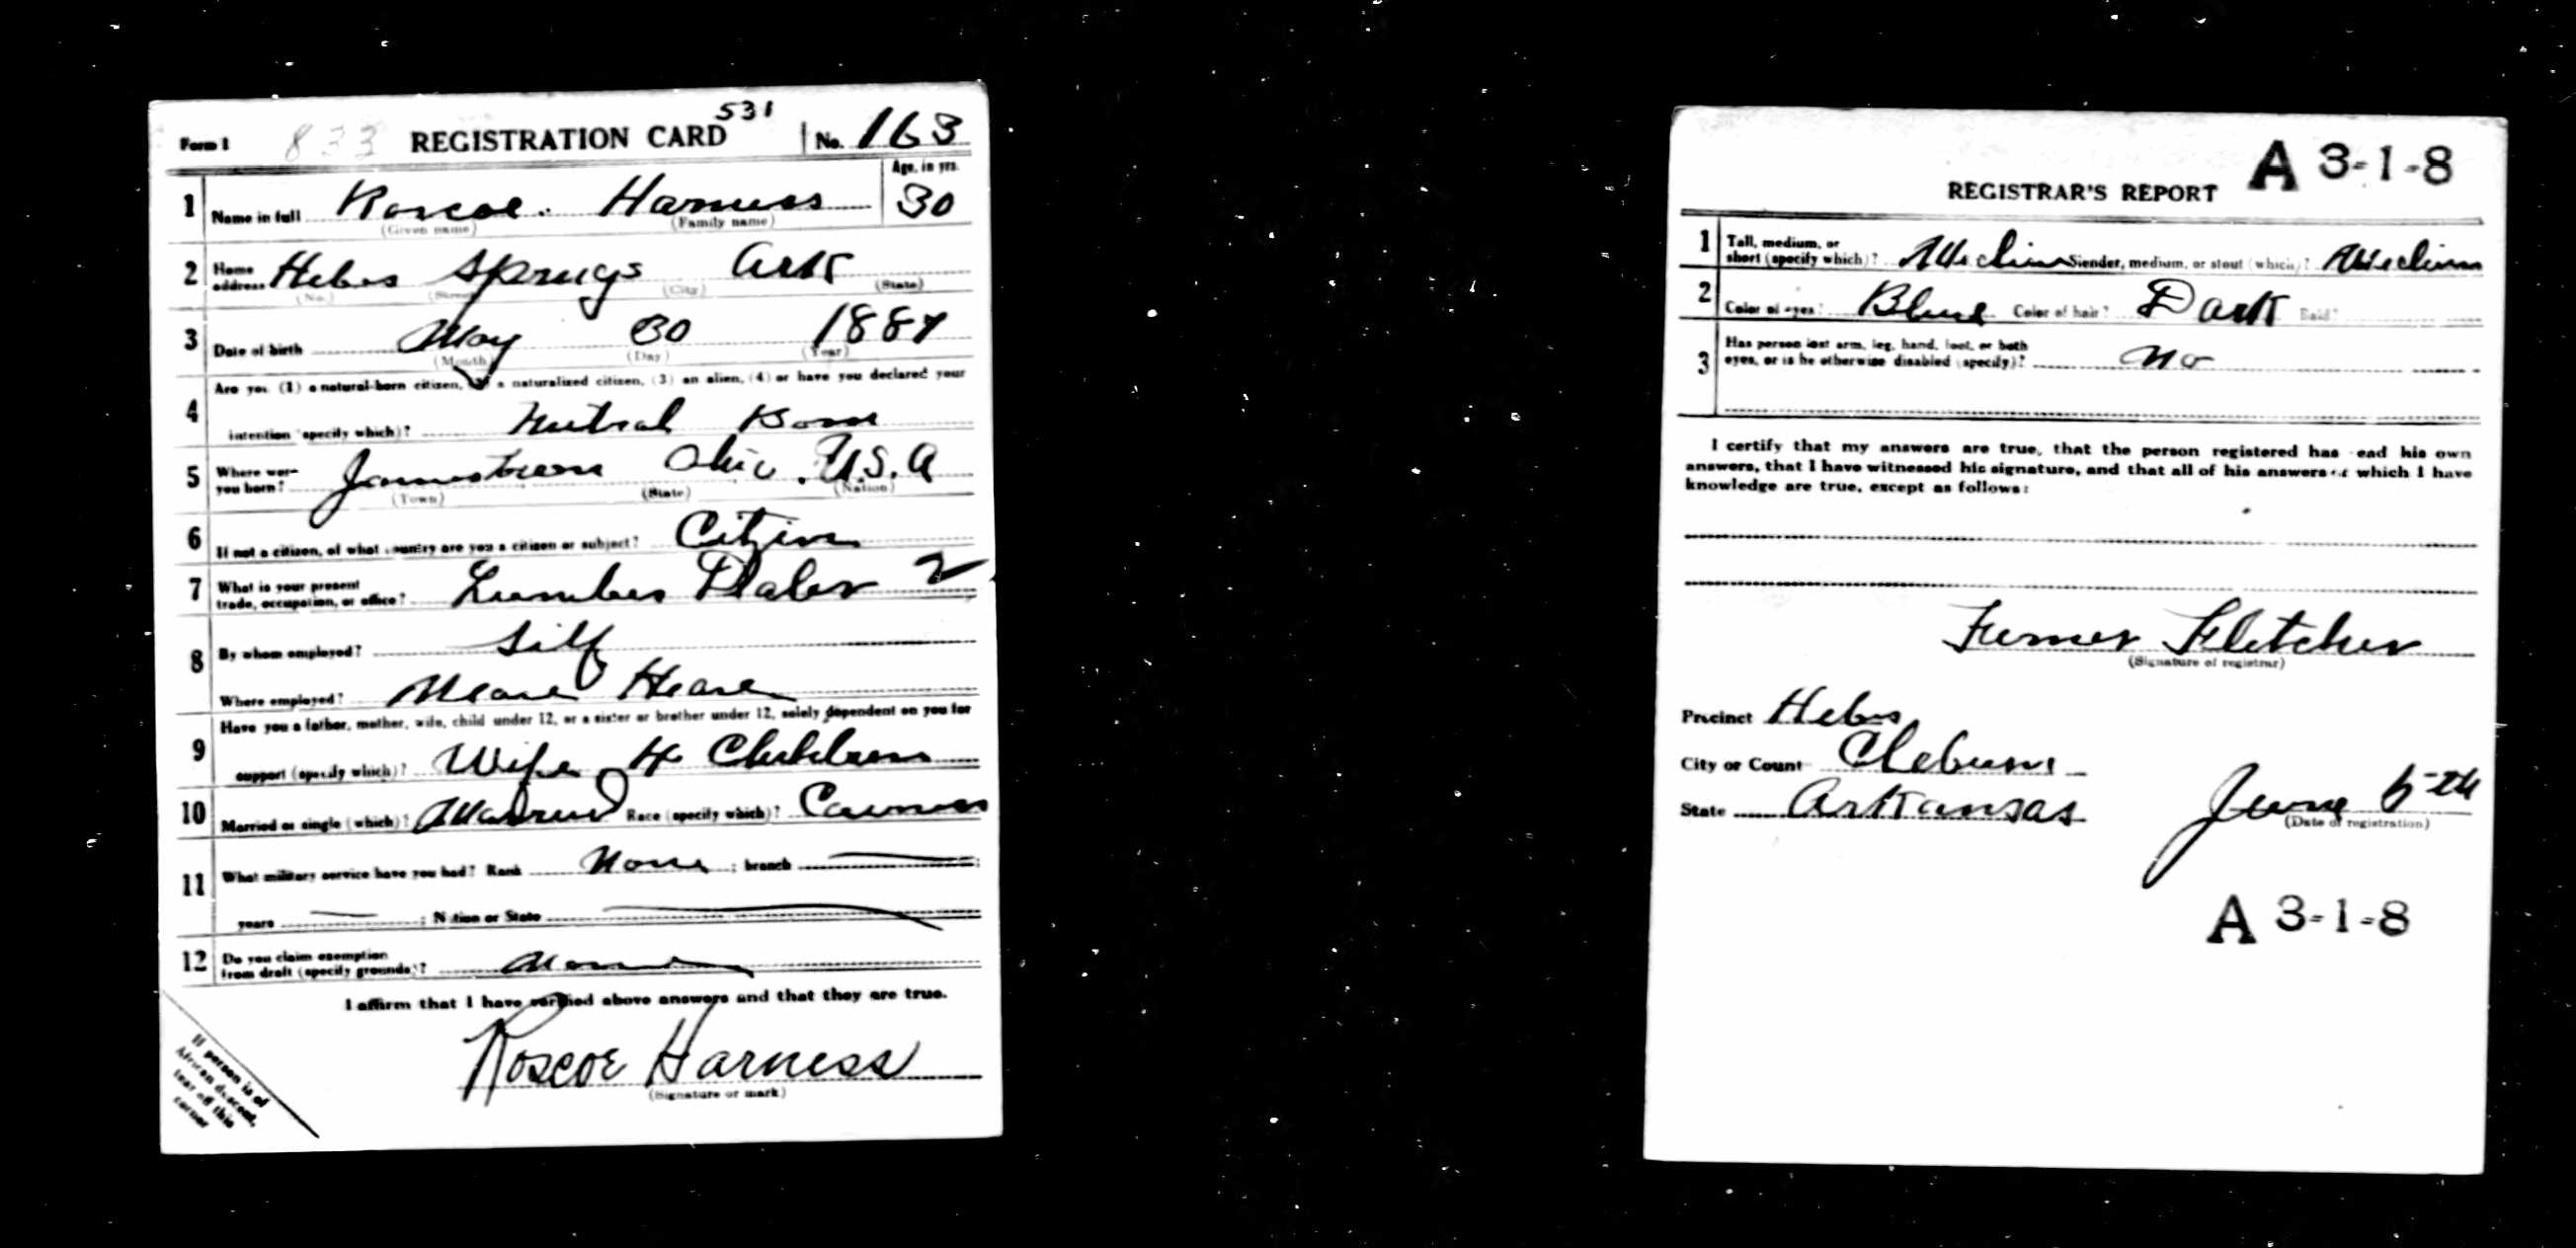 531
Form 1 833 REGISTRATION CARD No. 163
Age, in yrs.
1 Name in full Roscoe. Harness 30
(Given name) (Family name)
2 Home address Hebes Springs Ark
(No.) (Street) (City) (State)
3 Date of birth May 30 1887
(Month) (Day) (Year)
4 Are you (1) a natural-born citizen, (2) a naturalized citizen, (3) an alien, (4) or have you declared your
intention (specify which)? Nutral Born
5 Where were you born? Jamestown Ohio. U.S.A
(Town) (State) (Nation)
6 If not a citizen, of what country are you a citizen or subject? Citizen
7 What is your present
trade, occupation, or office? Lumber Dealer 2
8 By whom employed? Self
Where employed?
9 Have you a father, mother, wife, child under 12, or a sister or brother under 12, solely dependent on you for
support (specify which)? Wife 4 Children
10 Married or single (which)? Married Race (specify which)?
11 What military service have you had? Rank None ; branch ;
years ; Nation or State
12 Do you claim exemption
from draft (specify grounds)? None
I affirm that I have verified above answers and that they are true.
Roscoe Harness
(Signature or mark)
If person is of
African descent,
tear off this
corner
REGISTRAR'S REPORT A 3-1-8
1 Tall, medium, or
short (specify which)? Medium Slender, medium, or stout (which)? Medium
2 Color of eyes? Blue Color of hair? Dark Bald?
3 Has person lost arm, leg, hand, foot, or both
eyes, or is he otherwise disabled (specify)? No
I certify that my answers are true, that the person registered has read his own
answers, that I have witnessed his signature, and that all of his answers of which I have
knowledge are true, except as follows:
Fletcher
(Signature of registrar)
Precinct Hebes
City or County Cleburne
State Arkansas June 5th
(Date of registration)
A 3-1-8